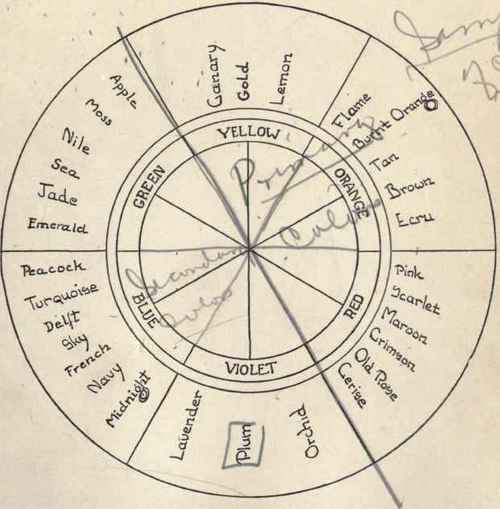 Canary
Gold
Lemon
Flame
Burnt Orange
Tan
Brown
Ecru
Pink
Scarlet
Maroon
Crimson
Old Rose
Cerise
Orchid
Plum
Lavender
Midnight
Navy
French
Sky
Delft
Turquoise
Peacock
Emerald
Jade
Sea
Nile
Moss
Apple
YELLOW
ORANGE
RED
VIOLET
BLUE
GREEN
Primary
Colors
Secondary
Colors